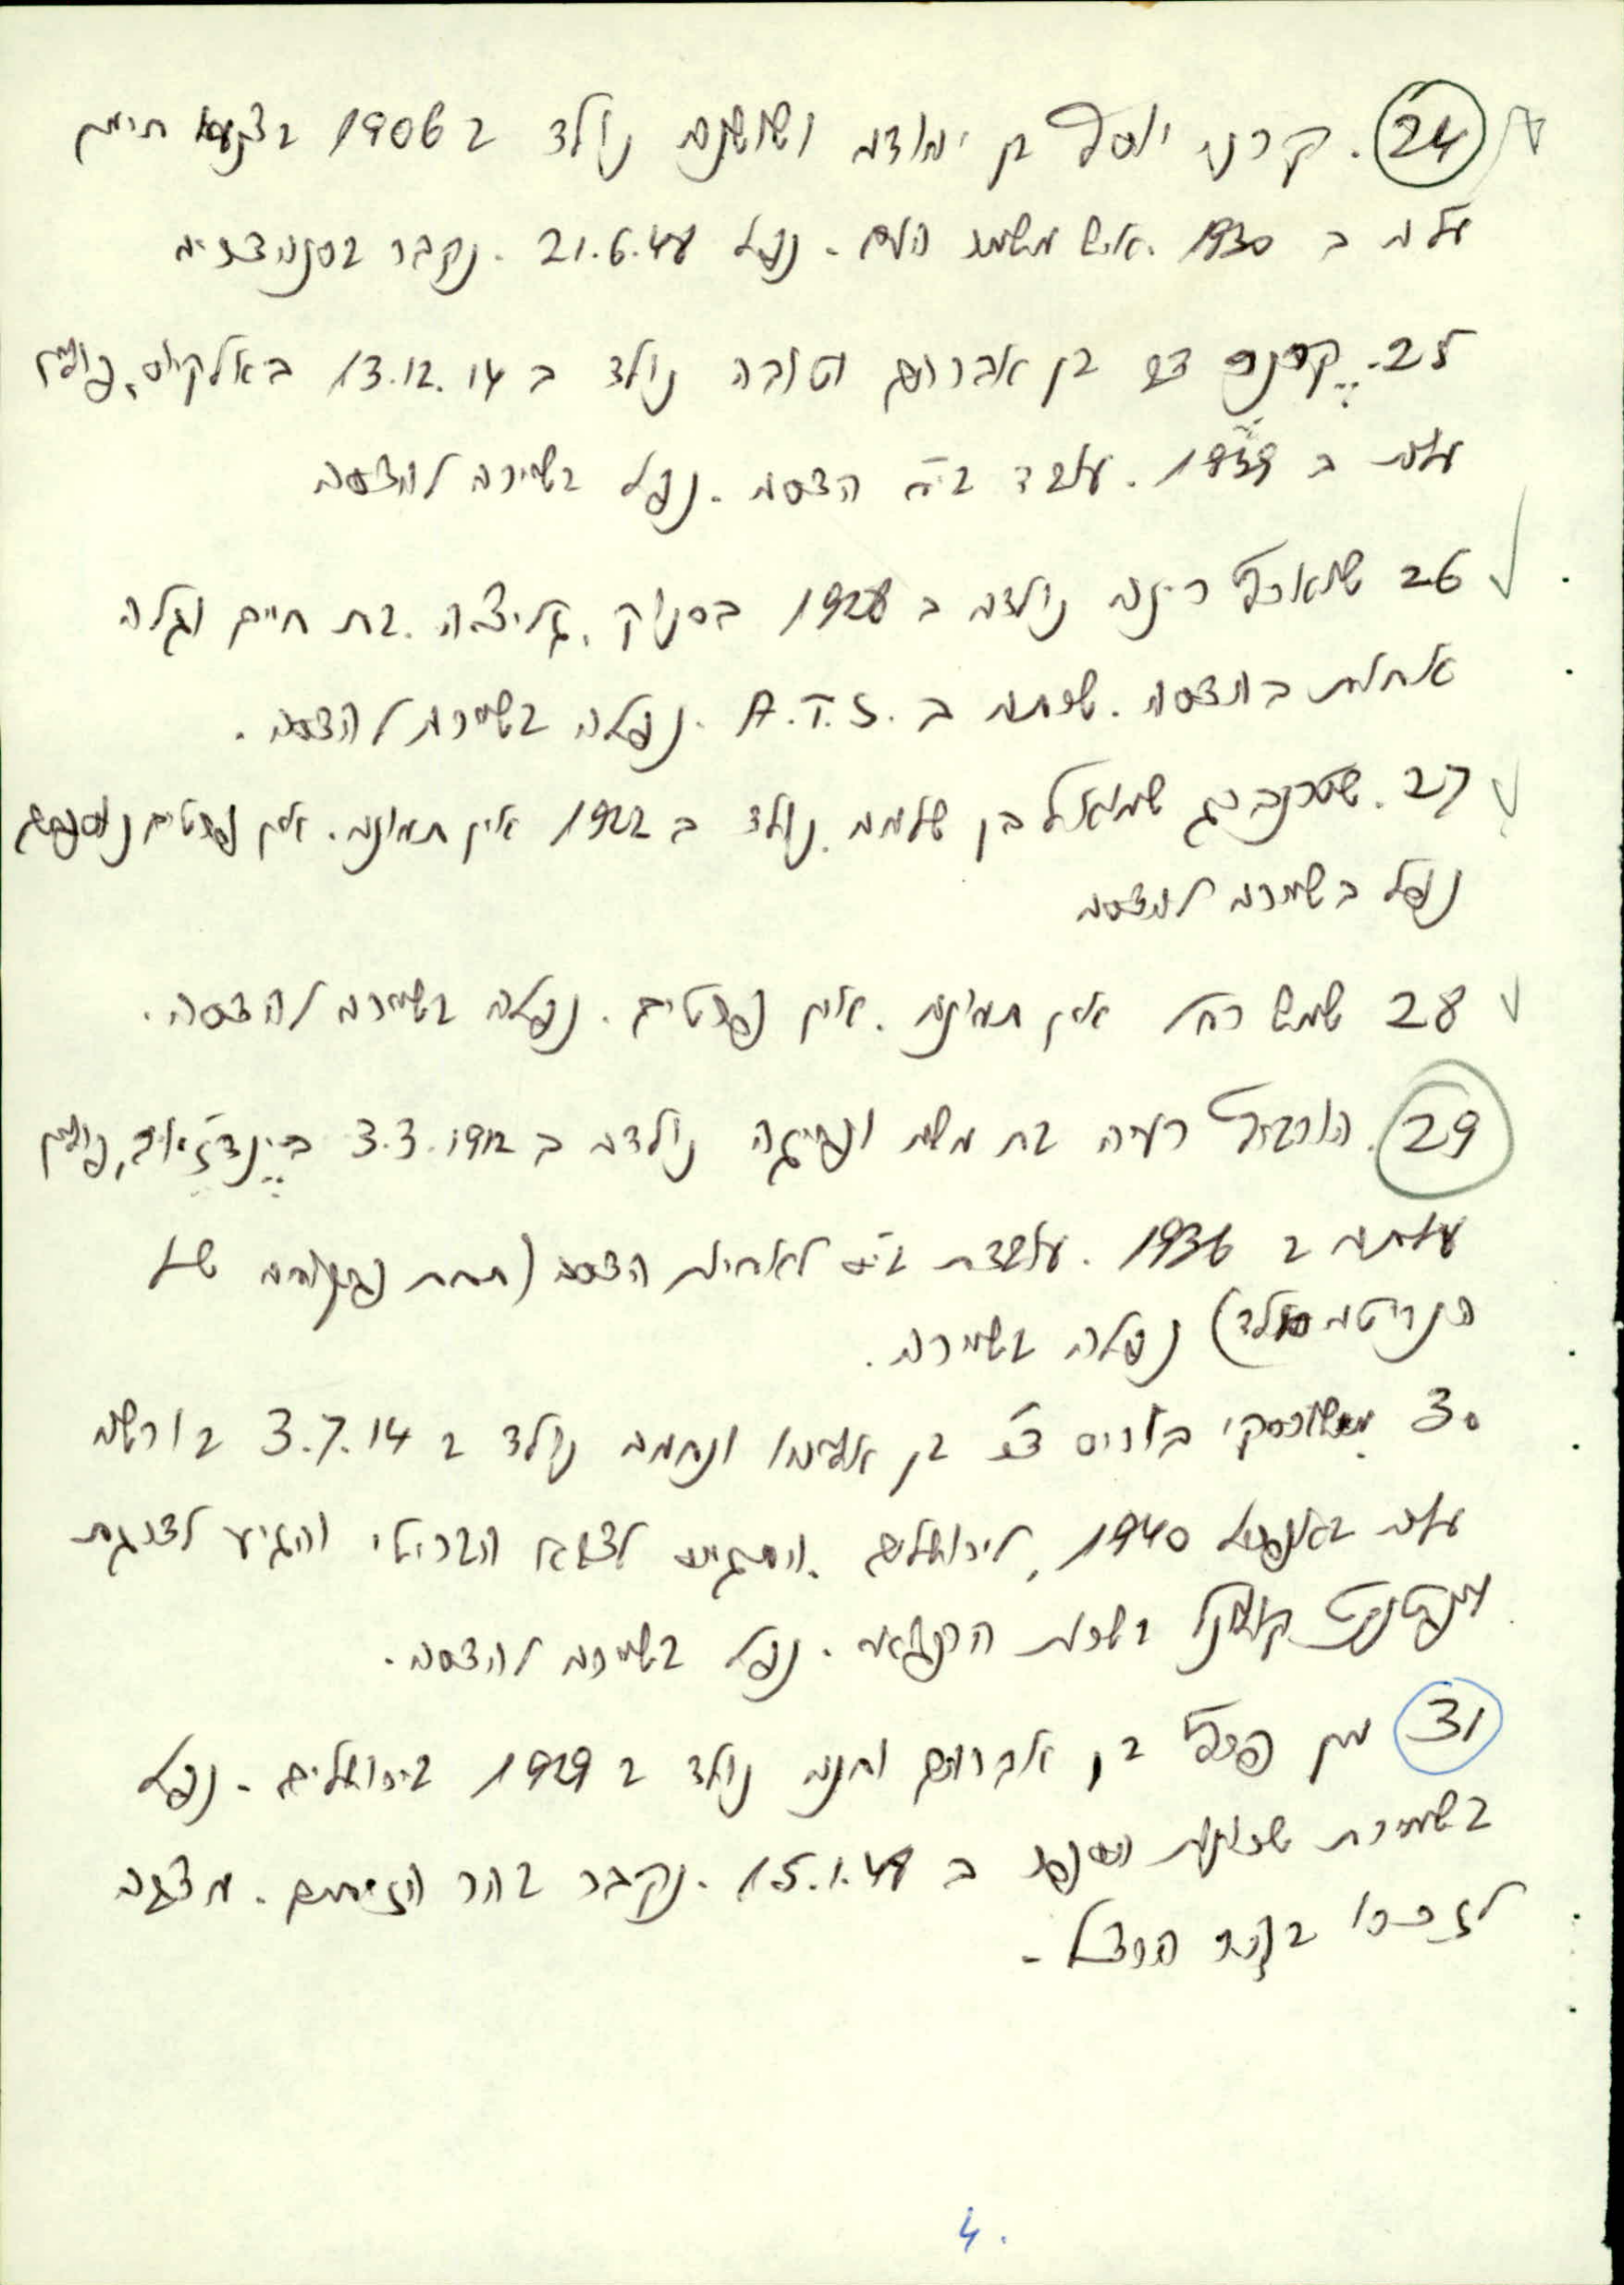 24. קרני יוסף בן יהודה ושושנה נולד ב 1906 בצנעא תימן
עלה ב 1930. איש משמר העם. נפל 21.6.48. נקבר בסנהדריה
25. בן אברהם וטובה נולד ב 13.12.14 פולין
עלה ב 1939. עובד בי"ח הדסה. נפל בשיירה להדסה
26 רינה נולדה ב 1928 בסנוק, גליציה. בת חיים וגלה
אחות בהדסה. שרתה ב A.T.S. נפלה בשיירה להדסה.
27. שטרנברג שמואל בן שלמה. נולד ב 1922 אין תמונה. אין פרטים נוספים
נפל בשיירה להדסה
28 שמש רחל אין תמונה. אין פרטים. נפלה בשיירה להדסה.
29. רעיה בת משה ופייגה נולדה ב 3.3.1912 פולין
עלתה ב 1936. עובדת בי"ס לאחיות הדסה (תחת פיקוחה של
הנרייטה סאלד) נפלה בשיירה.
30 בוריס בן ונחמה נולד ב 3.7.14 בורשה
עלה 1940, לירושלים. התגייס לצבא הבריטי והגיע לדרגת
בשרות הרפואי. נפל בשיירה להדסה.
31 בן אברהם וחנה נולד ב 1929 בירושלים. נפל
בשמירת שכונת ב 15.1.48. נקבר בהר הזיתים. מצבה
לזכרו בהר הרצל.
4.